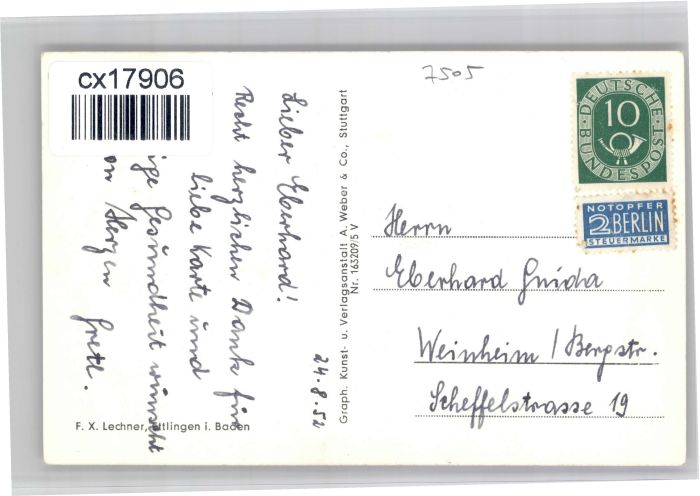 cx17906
7505
Lieber Eberhard!
Recht herzlichen Dank für
liebe Karte und
ige Gesundheit wünscht
on Herzen Gretl.
24.8.52
F. X. Lechner, Ettlingen i. Baden
Graph. Kunst- u. Verlagsanstalt A. Weber & Co., Stuttgart
Nr. 163209/5 V
DEUTSCHE
10
BUNDESPOST
NOTOPFER
2 BERLIN
STEUERMARKE
Herrn
Eberhard Guida
Weinheim / Bergstr.
Scheffelstrasse 19